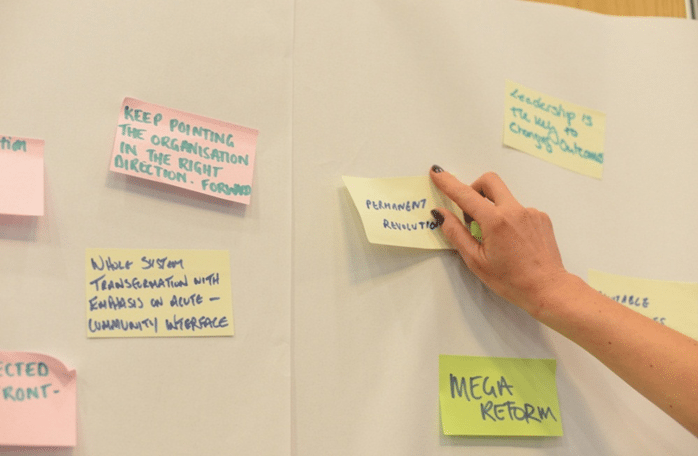 tion
KEEP POINTING
THE ORGANISATION
IN THE RIGHT
DIRECTION. FORWARD
Leadership is
the key to
Changing Outcomes
PERMANENT
REVOLUTION
WHOLE SYSTEM
TRANSFORMATION WITH
EMPHASIS ON ACUTE –
COMMUNITY INTERFACE
TABLE
ECTED
RONT-
MEGA
REFORM